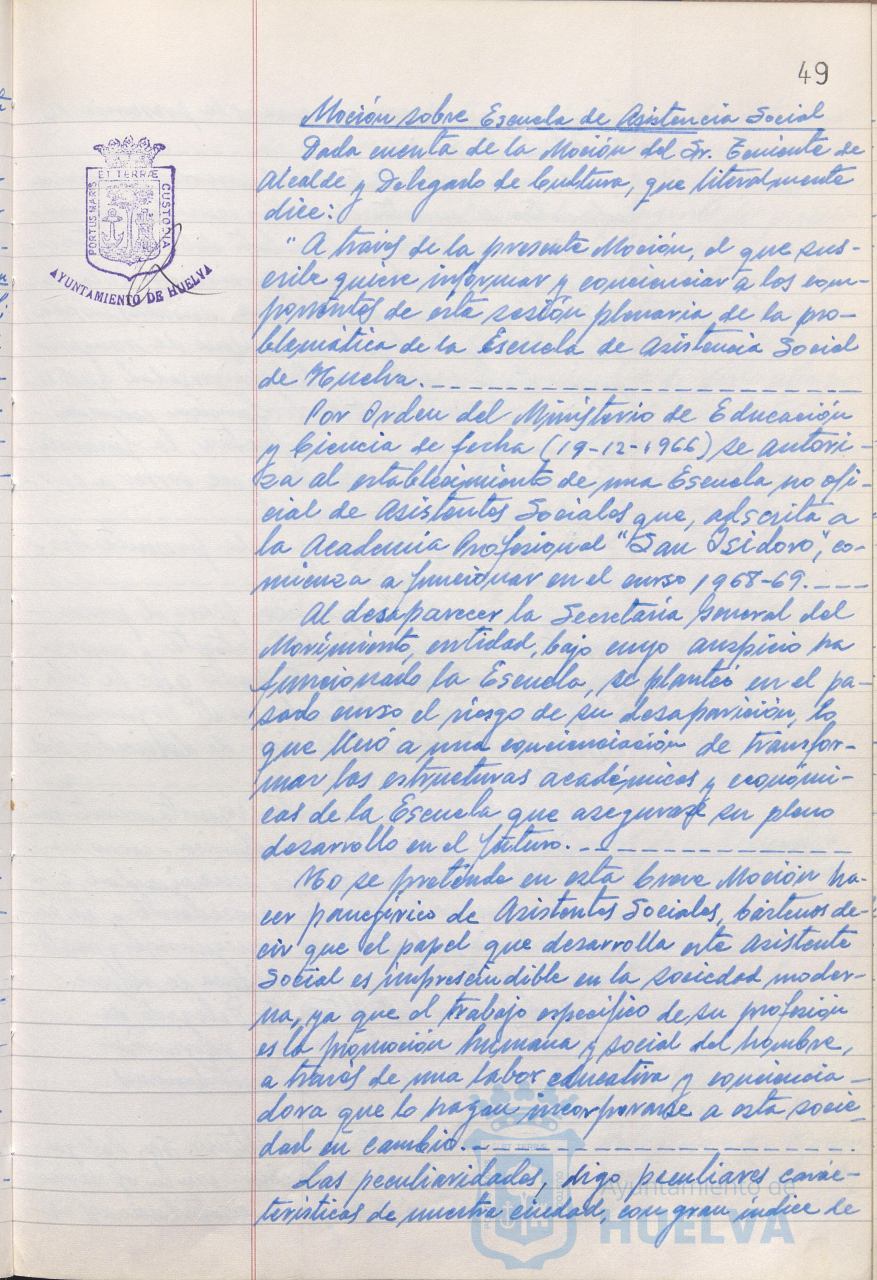 49
Moción sobre Escuela de Asistencia Social
Dada cuenta de la Moción del Sr. Teniente de
Alcalde y Delegado de Cultura, que literalmente
dice:
"A través de la presente Moción, el que sus-
cribe quiere informar y concienciar a los com-
ponentes de esta sesión plenaria de la pro-
blemática de la Escuela de Asistencia Social
de Huelva.
Por Orden del Ministerio de Educación
y Ciencia de fecha (19-12-1966) se autori-
za al establecimiento de una Escuela no ofi-
cial de Asistentes Sociales que, adscrita a
la Academia Profesional "San Isidoro", co-
mienza a funcionar en el curso 1968-69.
Al desaparecer la Secretaría General del
Movimiento, entidad, bajo cuyo auspicio ha
funcionado la Escuela, se planteó en el pa-
sado curso el riesgo de su desaparición, lo
que llevó a una concienciación de transfor-
mar las estructuras académicas y económi-
cas de la Escuela que asegurase su pleno
desarrollo en el futuro.
No se pretende en esta breve Moción ha-
cer panegírico de Asistentes Sociales, bástenos de-
cir que el papel que desarrolla este Asistente
Social es imprescindible en la sociedad moder-
na, ya que el trabajo específico de su profesión
es la promoción humana y social del hombre,
a través de una labor educativa y conciencia-
dora que lo hagan incorporarse a esta socie-
dad en cambio.
Las peculiaridades, digo peculiares carac-
terísticas de nuestra ciudad, con gran índice de
PORTUS MARIS ET TERRÆ CUSTODIA
AYUNTAMIENTO DE HUELVA
Ayuntamiento de
HUELVA